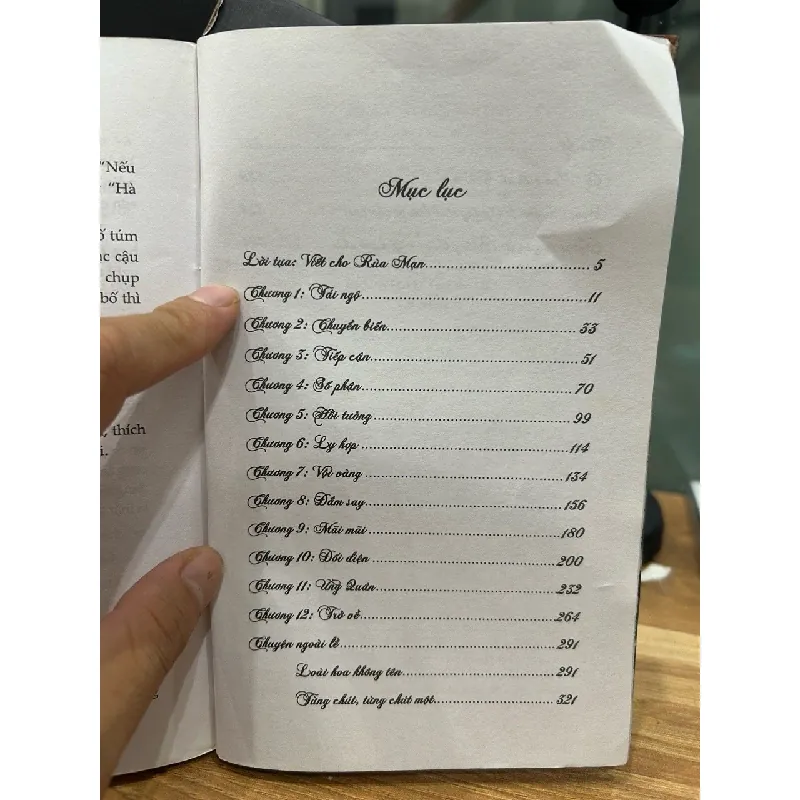 "Nếu
"Hà
ố túm
ạc cậu
chụp
bố thì
, thích
i.
Mục lục
Lời tựa: Viết cho Rùa Mạn 5
Chương 1: Tái ngộ 11
Chương 2: Chuyển biến 33
Chương 3: Tiếp cận 51
Chương 4: Số phận 70
Chương 5: Hồi tưởng 99
Chương 6: Ly hợp 114
Chương 7: Vội vàng 134
Chương 8: Đắm say 156
Chương 9: Mãi mãi 180
Chương 10: Đối diện 200
Chương 11: Ưng Quân 232
Chương 12: Trở về 264
Chuyện ngoài lề 291
Loài hoa không tên 291
Từng chút, từng chút một 321